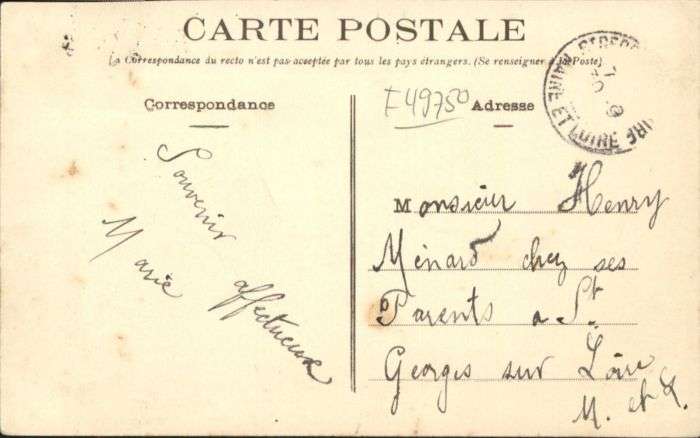 CARTE POSTALE
La Correspondance du recto n'est pas acceptée par tous les pays étrangers. (Se renseigner à la Poste)
Correspondance
F49750
Adresse
MAINE ET LOIRE
Souvenir affectueux
Marie
Monsieur Henry
Ménard chez ses
Parents a St
Georges sur Loire
M. et L.